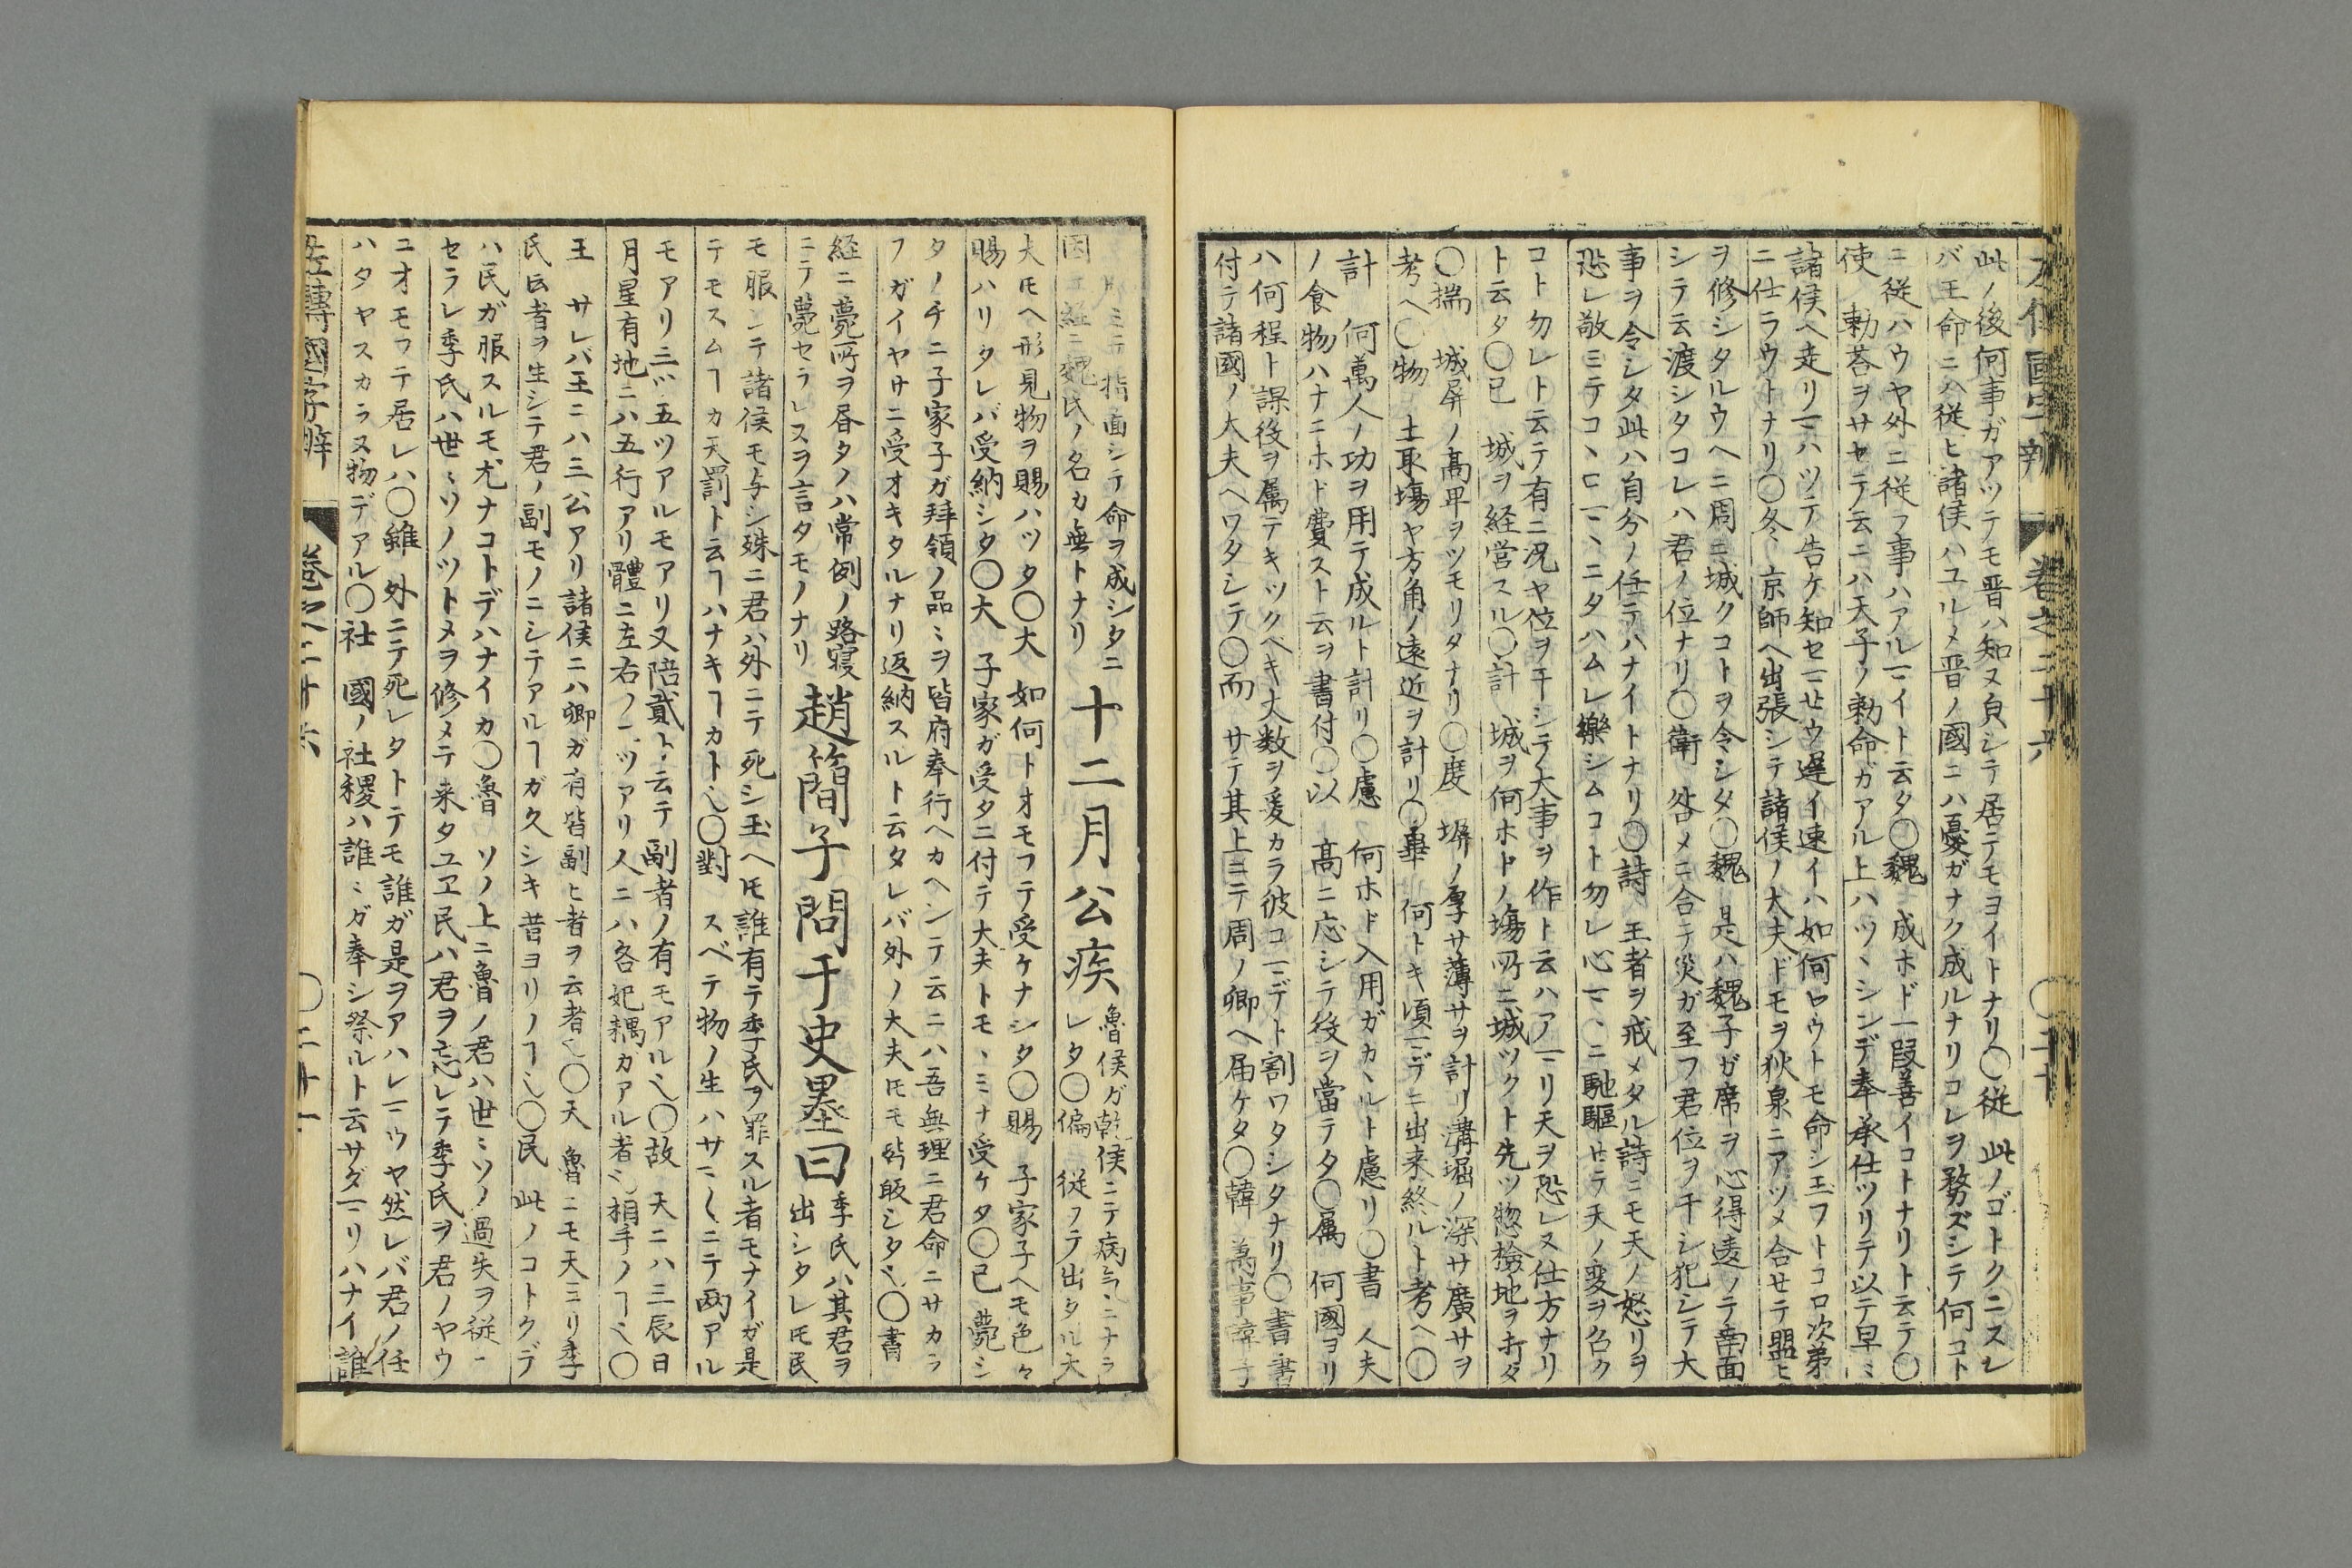 此ノ後何事ガアツテモ晋ハ知ヌ㒵シテ居ニテモヨイトナリ〇従 此ノゴトクニスレ
バ王命ニハ従ヒ諸侯ハユルメ晋ノ國ニハ憂ガナク成ルナリコレヲ務ズシテ何コト
ニ従ハウヤ外ニ従フ事ハアルマイト云タ〇魏 成ホド一段善イコトナリト云テ〇
使 勅荅ヲサセテ云ニハ天子ノ勅命ガアル上ハツヽシンデ奉承仕ツリテ以テ早ミ
諸侯ヘ走リマハツテ告ケ知セマせウ遅イ速イハ如何ロウトモ命シ玉フトコロ次第
ニ仕ラウトナリ〇冬 京師ヘ出張シテ諸侯ノ大夫ドモヲ狄泉ニアツメ合せテ盟ヒ
ヲ修シタルウヘニ周ニ城クコトヲ令シタ〇魏 是ハ魏子ガ席ヲ心得違ノテ南面
シテ云渡シタコレハ君ノ位ナリ〇衛 咎メニ合テ災ガ至フ君位ヲ干シ犯シテ大
事ヲ令シタ此ハ自分ノ任テハナイトナリ〇詩 王者ヲ戒メタル詩ニモ天ノ怒リヲ
恐レ敬ミテコヽロマヽニタハムレ樂シムコト勿レ心マヽニ馳驅せラ天ノ変ヲ名ク
コト勿レト云テ有ニ况ヤ位ヲ干シテ大事ヲ作ト云ハアマリ天ヲ恐レヌ仕方ナリ
ト云タ〇已 城ヲ経営スル〇計 城ヲ何ホドノ塲所ニ城ツクト先ツ惣檢地ヲ打タ
〇揣 城屏ノ髙卑ヲツモリタナリ〇度 塀ノ厚サ薄サヲ計リ溝堀ノ深サ廣サヲ
考ヘ〇物 土取塲ヤ方角ノ遠近ヲ計リ〇畢 何トキ頃マデニ出来終ルト考ヘ〇
計 何萬人ノ功ヲ用テ成ルト計リ〇慮 何ホド入用ガカヽルト慮リ〇書 人夫
ノ食物ハナニホド費スト云ヲ書付〇以 髙ニ応シテ役ヲ當テタ〇属 何國ヨリ
ハ何程ト課役ヲ属テキツクベキ大数ヲ爰カラ彼コマデト割ワタシタナリ〇書 書
付テ諸國ノ大夫ヘワタシテ〇而 サテ其上ニテ周ノ卿ヘ届ケタ〇韓 萬事韓子
ミテ指面シテ命ヲ成シタニ
因 経ニ魏氏ノ名カ無トナリ 十二月公疾 魯侯ガ乾侯ニテ病氣ニナラ
レタ〇偏 従フテ出タル大
夫モヘ形見物ヲ賜ハツタ〇大 如何トオモフテ受ケナンタ〇賜 子家子ヘモ色々
賜ハリタレバ受納シタ〇大 子家ガ受タニ付テ大夫トモヽミナ受ケタ〇已 薨シ
タノチニ子家子ガ拝領ノ品ミヲ皆府奉行ヘカヘシテ云ニハ吾無理ニ君命ニサカラ
フガイヤサニ受オキタルナリ返納スルト云タレバ外ノ大夫モモ皆皈シタ〇書
経ニ薨所ヲ㫺タノハ常例ノ路寝
ニテ薨セラレスヲ言タモノナリ 趙簡子問于史墨曰 季氏ハ其君ヲ
出シタレモ民
モ服シテ諸侯モ与シ殊ニ君ハ外ニテ死シ玉ヘモ誰有テ季氏ヲ罪スル者モナイガ是
テモスムヿカ天罰ト云ヿハナキヿカト〇對 スベテ物ノ生ハサマ〱ニテ両アル
モアリ三ツ五ツアルモアリ又陪貳ト云テ副者ノ有モアル〇故 天ニハ三辰日
月星有地ニハ五行アリ體ニ左右ノ二ツアリ人ニハ各妃耦ガアル者相手ノヿ〇
王 サレバ王ニハ三公アリ諸侯ニハ卿ガ有皆副ヒ者ヲ云者〇天 魯ニモ天ヨリ季
氏云者ヲ生シテ君ノ副モノニシテアルヿガ久シキ昔ヨリノヿ〇民 此ノコトクデ
ハ民ガ服スルモ尤ナコトデハナイカ〇魯 ソノ上ニ魯ノ君ハ世ミソノ過失ヲ従ニ
セラレ季氏ハ世ミソノツトメヲ修メテ来タユヱ民ハ君ヲ忘レテ季氏ヲ君ノヤウ
ニオモフテ居レハ〇雖 外ニテ死レタトテモ誰ガ是ヲアハレマウヤ然レバ君ノ任
ハタヤスカラヌ物デアル〇社 國ノ社稷ハ誰ミガ奉シ祭ルト云サダマリハナイ誰
左傳國字辨 巻之二十六 〇二十一